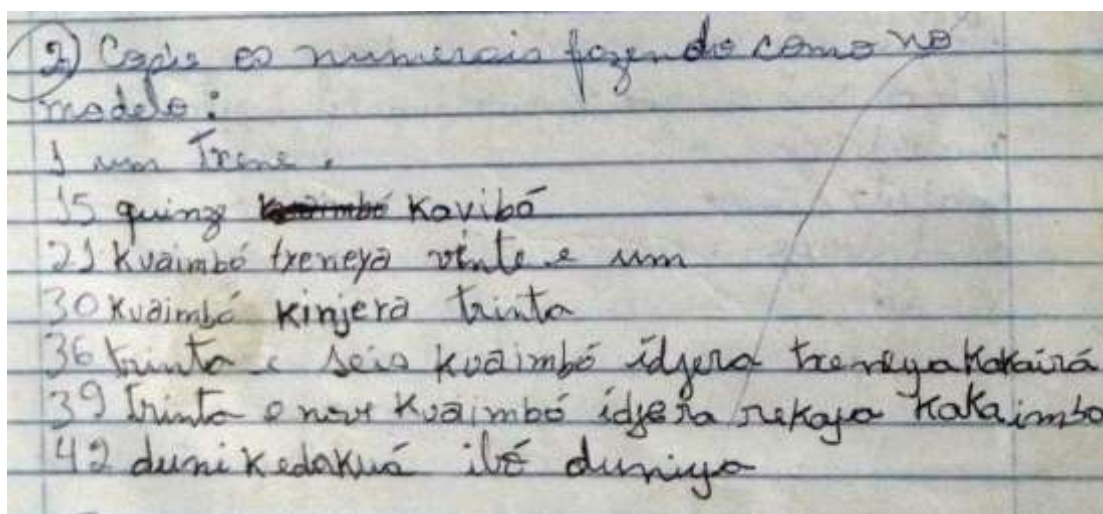 2) Copie os numerais fazendo como no
modelo:
1 um Trene.
15 quinze Kavibó
21 Kuaimbó treneya vinte e um
30 Kuaimbó Kinjera trinta
36 trinta e seis kuaimbó idjera treneya Kakairá
39 trinta e nove Kuaimbó idjera rekaya Kakaimbo
42 duni Kedakuá ibó duniya